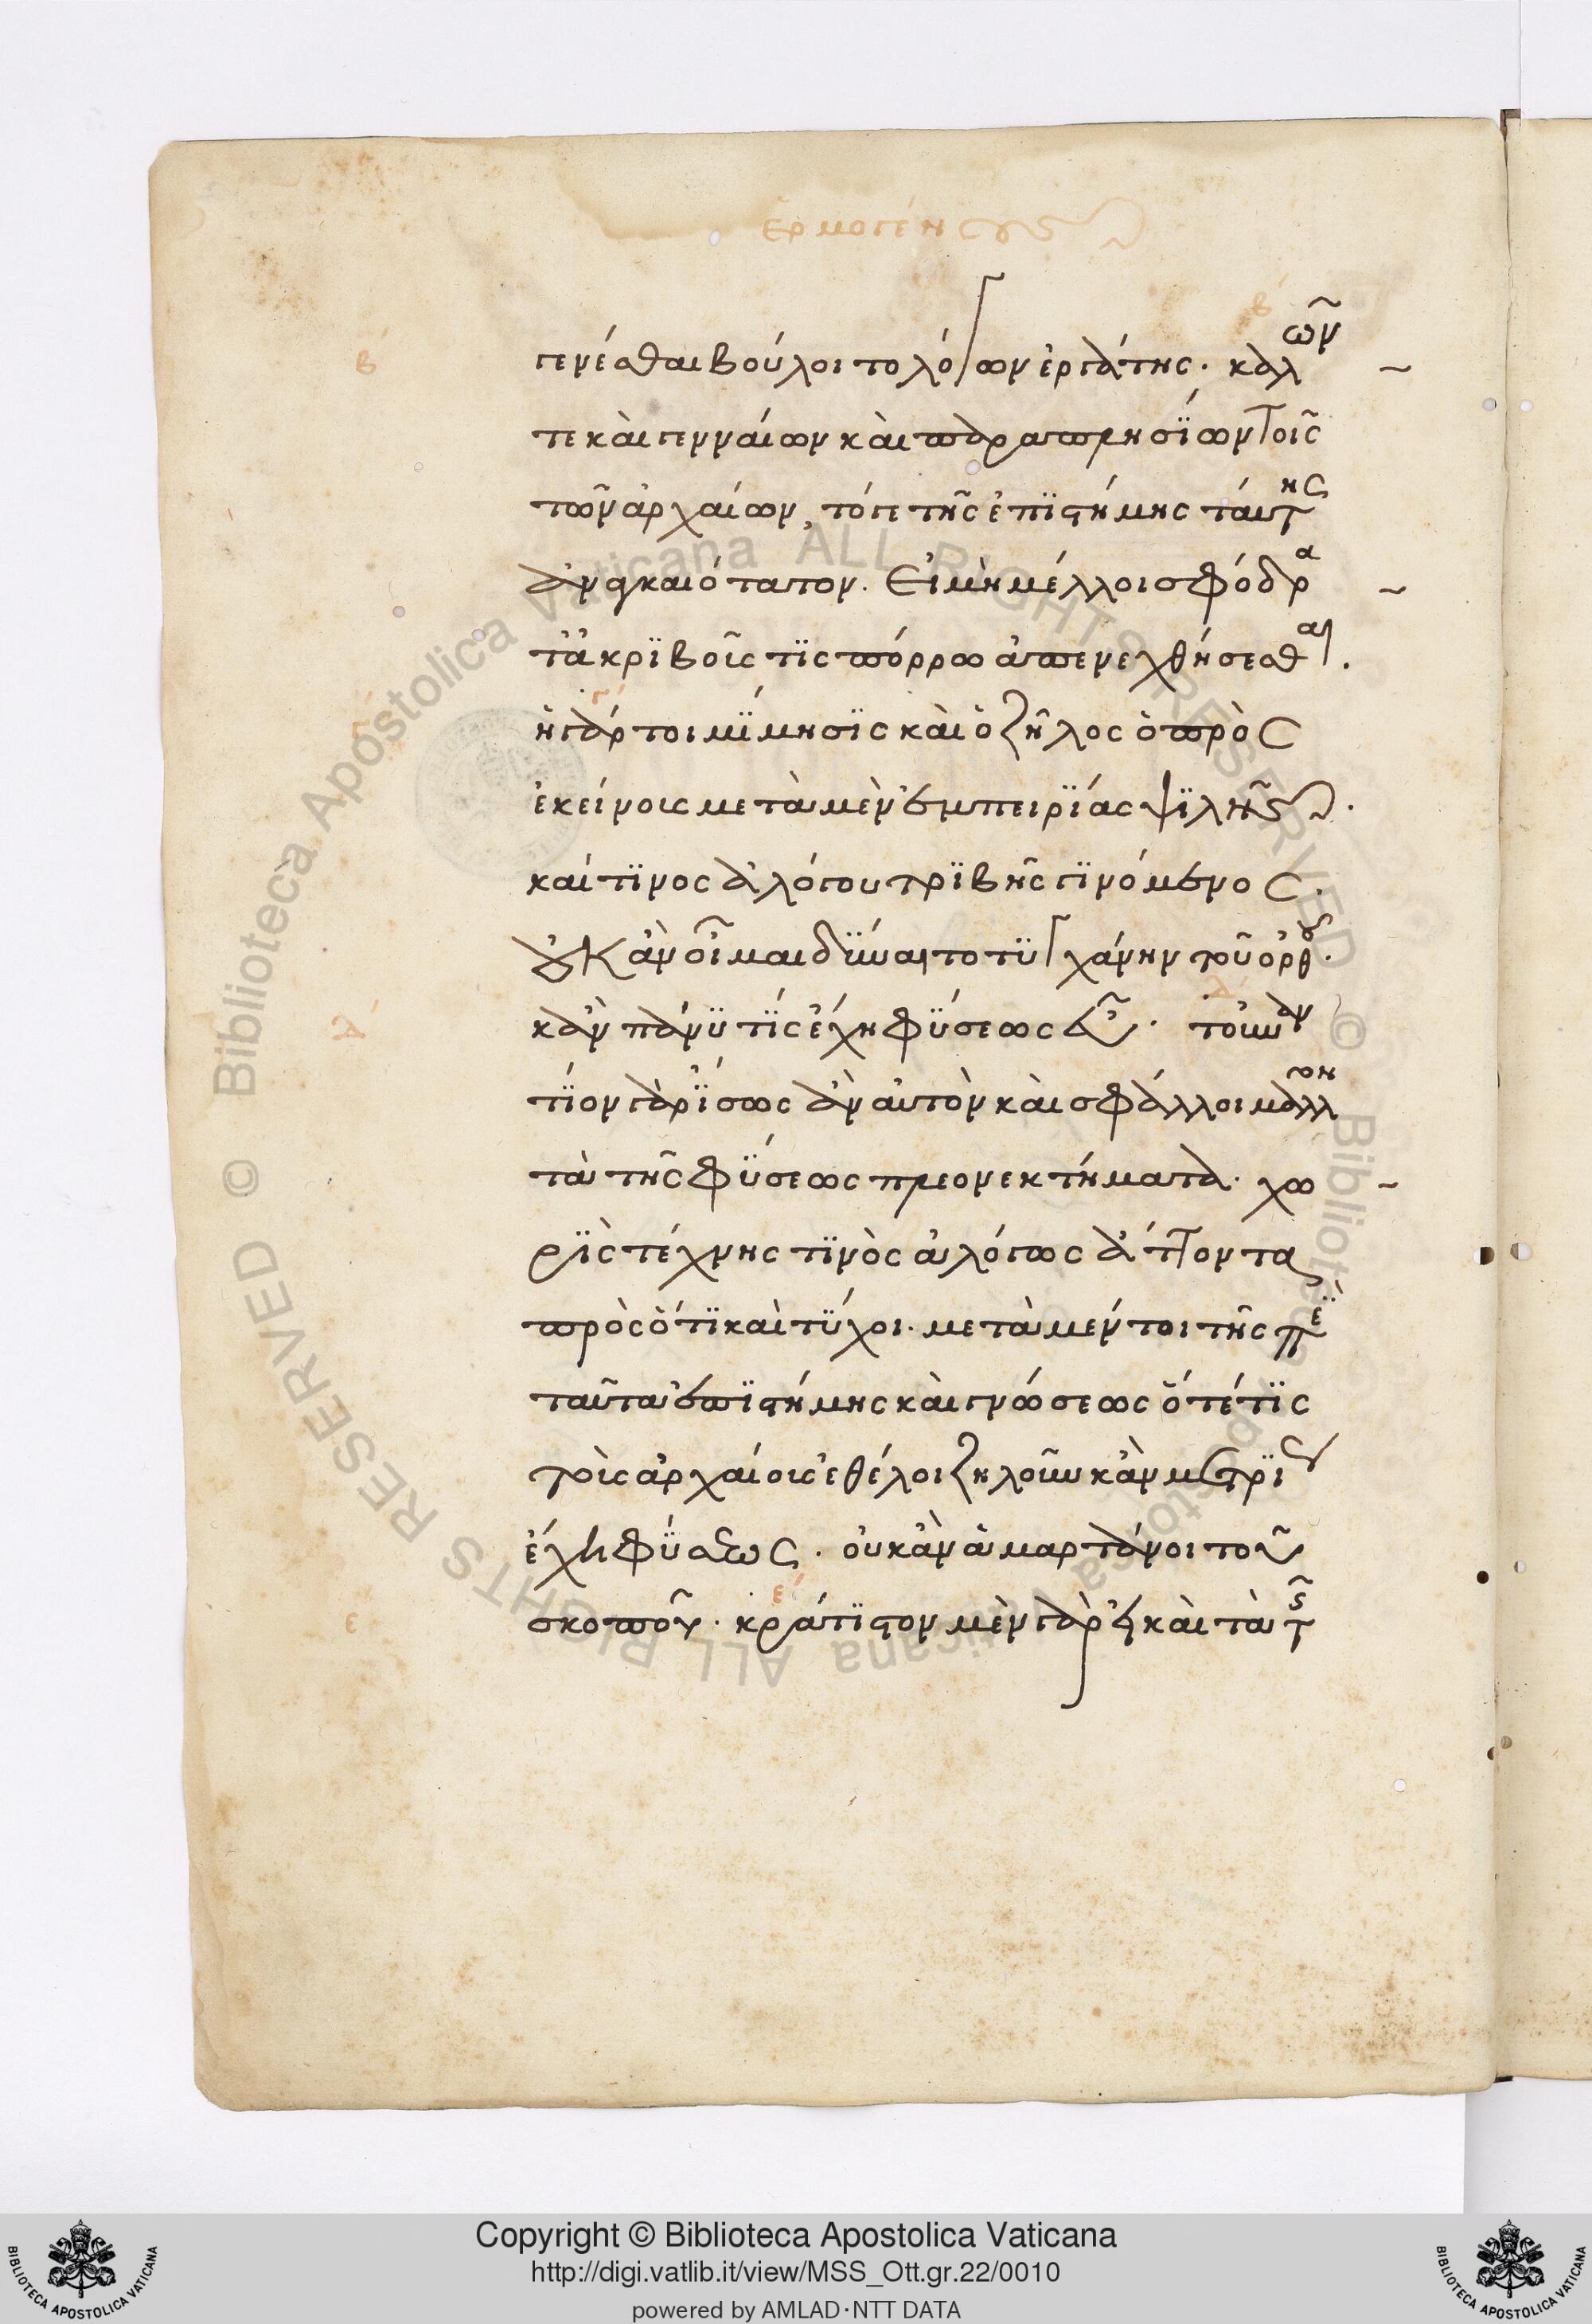 ἑρμογένους
β
γενέσθαι βούλοιτο λόγων ἐργάτης· καλῶν
τὲ καὶ γενναίων καὶ παραπλησίων τοῖς
τῶν ἀρχαίων, τό γε τῆς ἐπιστήμης ταύτης
ἀναγκαιότατον. Εἰ μὴ μέλλοι σφόδρα
τἀκριβοῖς τὶς πόρρω ἀπενεχθήσεσθαι.
ἡ γάρ τοι μίμησις καὶ ὁ ζῆλος ὁ πρὸς
ἐκείνοις μετὰ μὲν ἐμπειρίας ψιλῆς.
καί τινος ἀλόγου τριβῆς γινόμενος.
οὐκ ἂν οἶμαι δύναιτο τυγχάνην τοῦ ὀρθοῦ.
κἂν πάνυ τίς ἔχη φύσεως εὖ. τουναν
τίον γὰρ ἴσως ἂν αὐτὸν καὶ σφάλλοι μᾶλλον
τὰ τῆς φύσεως πλεονεκτήματα. χω
ρὶς τέχνης τινὸς ἀλόγως ἄττοντα
πρὸς ὅτι καὶ τύχοι. μετὰ μέν τοι τῆς περὶ
ταῦτα ἐπιστήμης καὶ γνώσεως ὅτέ τις
τοῖς ἀρχαίοις ἐθέλοι ζηλοῦν κἂν μετρί
ἔχη φύσεως. οὐκ ἂν ἁμαρτάνοι τοῦ
σκοποῦ. κράτιστον μὲν γὰρ εἰ καὶ τὰ τῆς
β
δ
ε
Copyright © Biblioteca Apostolica Vaticana
http://digi.vatlib.it/view/MSS_Ott.gr.22/0010
powered by AMLAD·NTT DATA